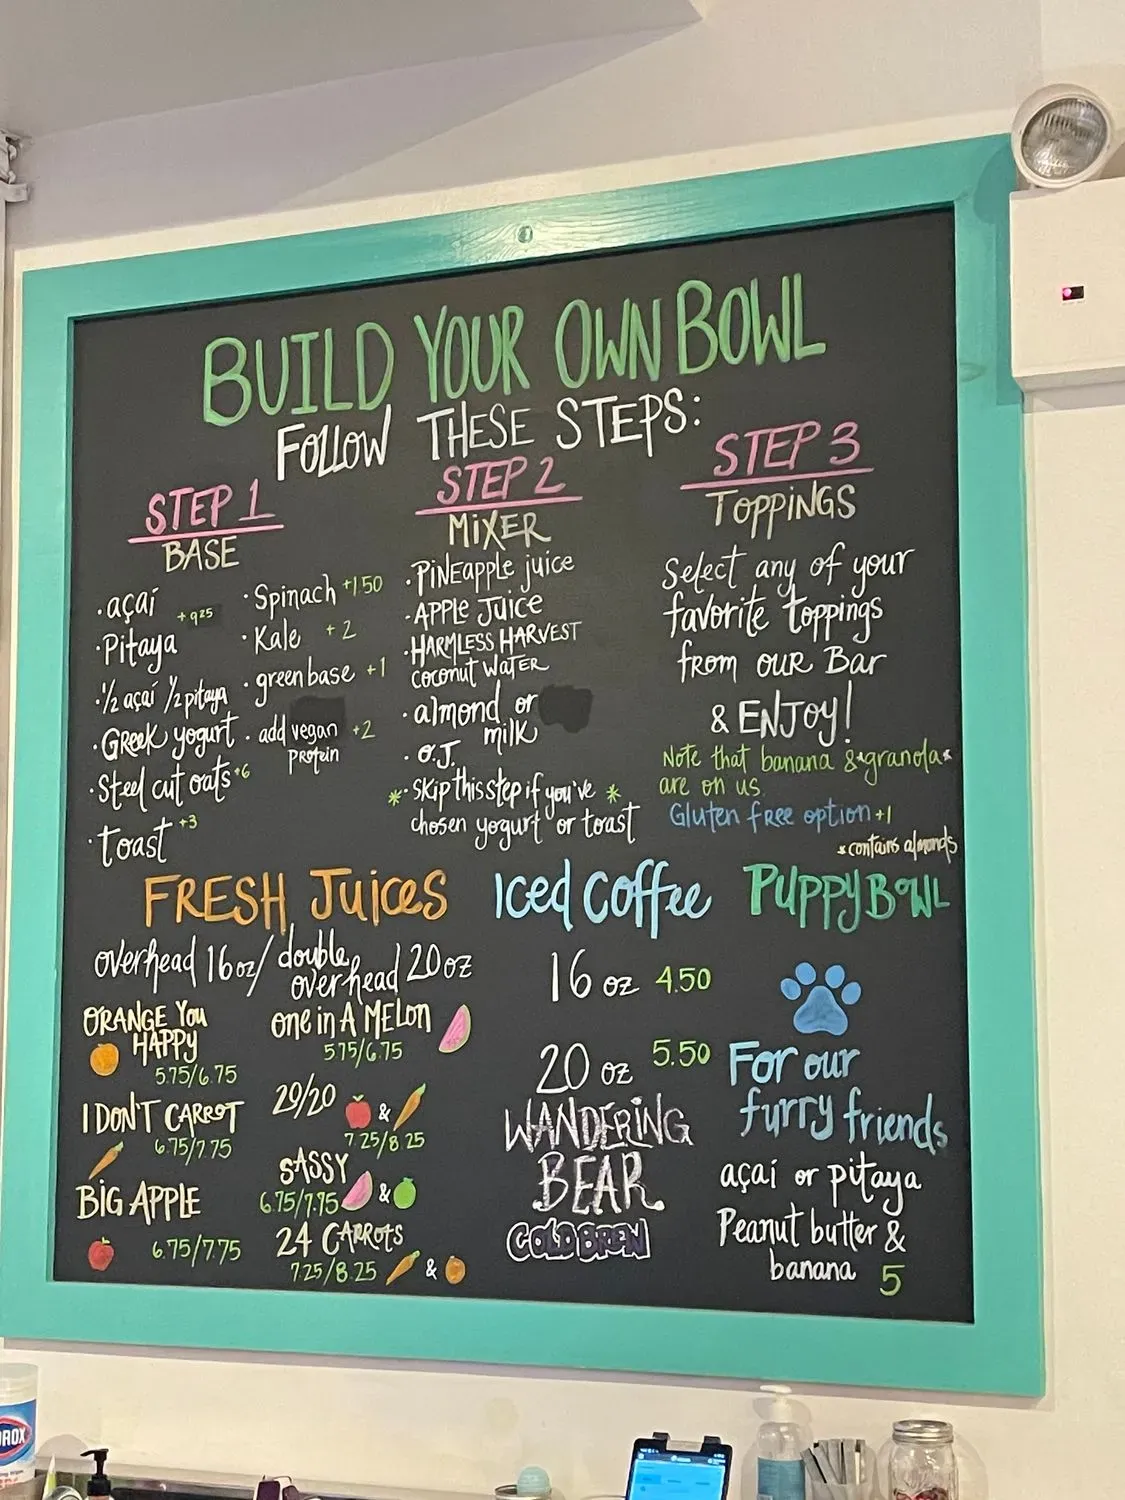 BUILD YOUR OWN BOWL
FOLLOW THESE STEPS:
STEP 1
BASE
· açaí
Pitaya +9.25
· 1/2 açaí 1/2 pitaya
· Greek yogurt
· Steel cut oats +6
· Toast +3
· Spinach +1.50
· Kale +2
· green base +1
· add vegan +2
protein
STEP 2
MIXER
· Pineapple juice
· Apple Juice
· HARMLESS HARVEST
coconut WATER
· almond or
milk
· O.J.
* · Skip this step if you've *
chosen yogurt or toast
STEP 3
TOPPINGS
Select any of your
favorite toppings
from our Bar
& ENJOY!
Note that banana & *granola*
are on us.
Gluten free option +1
*contains almonds
FRESH Juices
overhead 16 oz/ double
overhead 20 oz
ORANGE You
HAPPY
5.75/6.75
I DON'T CARROT
6.75/7.75
BIG APPLE
6.75/7.75
one in A MELON
5.75/6.75
20/20
&
7.25/8.25
SASSY
6.75/7.75 &
24 CARROTS
7.25/8.25 &
Iced Coffee
16 oz 4.50
20 oz 5.50
WANDERING
BEAR
COLD BREW
PUPPY BOWL
For our
furry friends
açaí or pitaya
Peanut butter &
banana 5
ROX